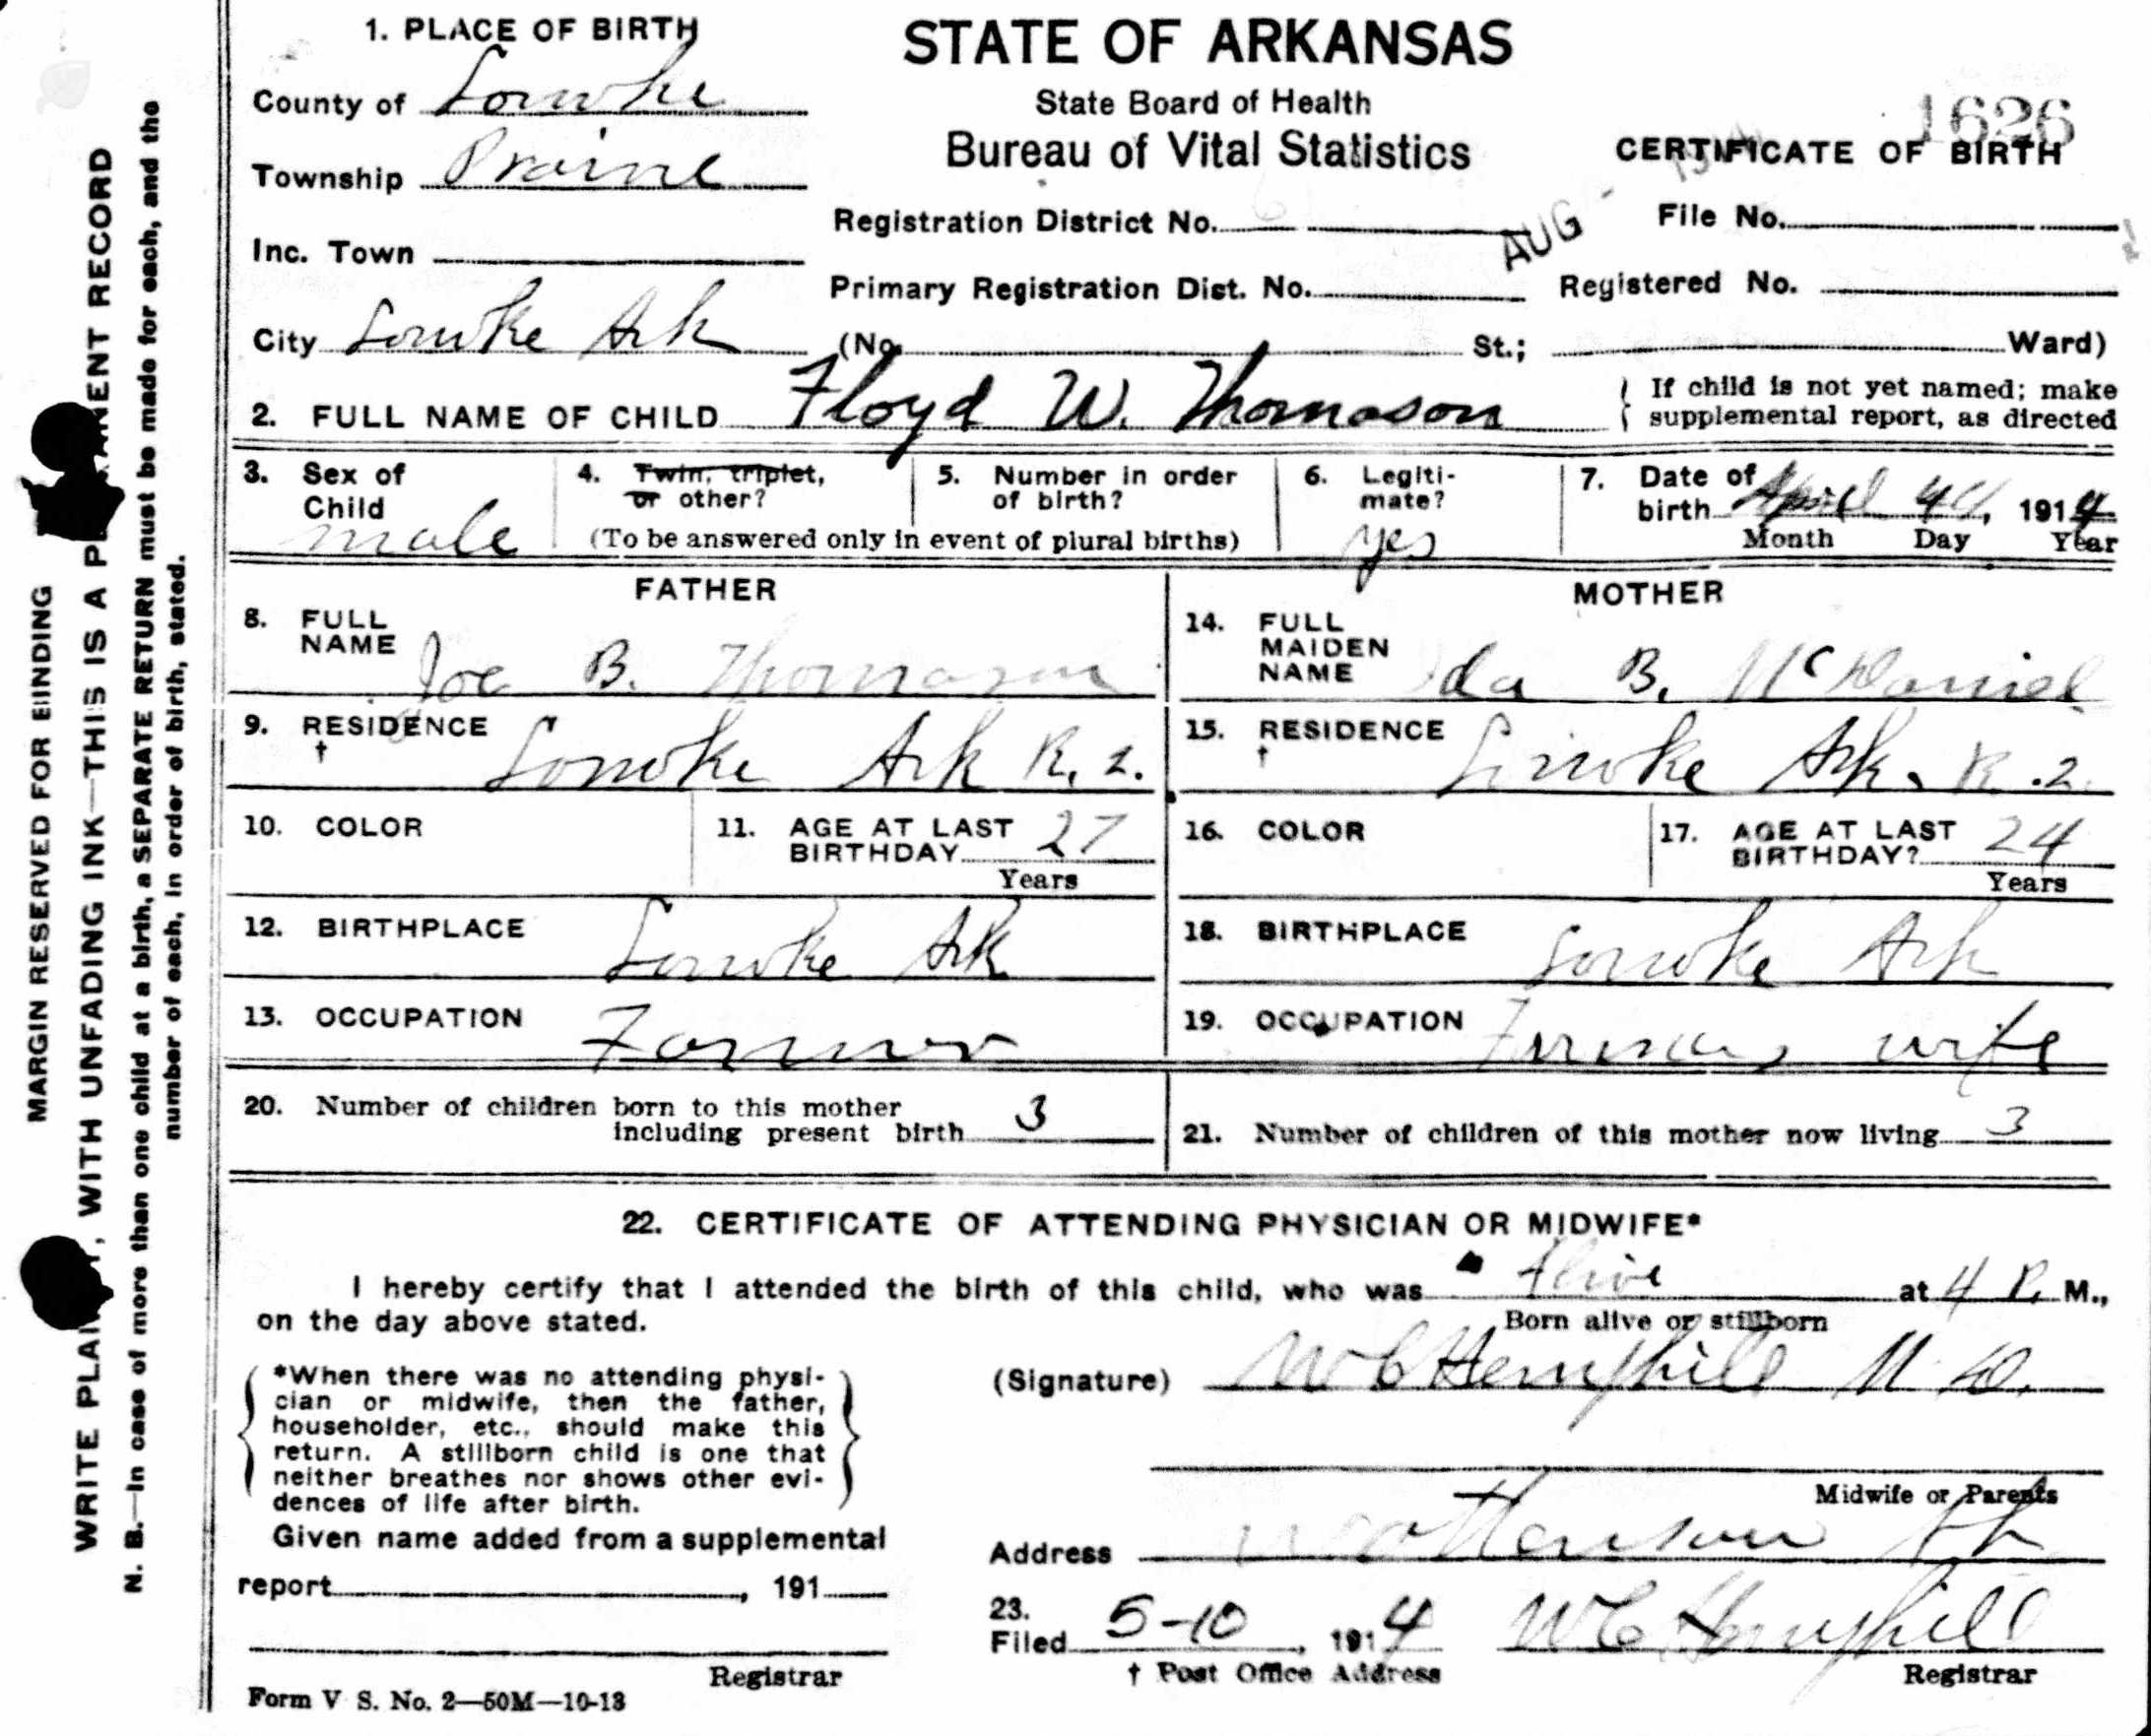 1. PLACE OF BIRTH
STATE OF ARKANSAS
State Board of Health
Bureau of Vital Statistics
1626
CERTIFICATE OF BIRTH
AUG
County of Lonoke
Township Prairie
Registration District No.
File No.
Inc. Town
Primary Registration Dist. No.
Registered No.
City Lonoke Ark (No. St.; Ward)
2. FULL NAME OF CHILD Floyd W. Thomason
If child is not yet named; make
supplemental report, as directed
3. Sex of
Child
male
4. Twin, triplet,
or other?
5. Number in order
of birth?
(To be answered only in event of plural births)
6. Legiti-
mate?
yes
7. Date of
birth April 4, 1914
Month Day Year
FATHER
8. FULL
NAME Joe B. Thomason
9. RESIDENCE
† Lonoke Ark R. 2.
10. COLOR
11. AGE AT LAST
BIRTHDAY 27
Years
12. BIRTHPLACE Lonoke Ark
13. OCCUPATION Farmer
MOTHER
14. FULL
MAIDEN
NAME Ida B. McDaniel
15. RESIDENCE
† Lonoke Ark. R. 2.
16. COLOR
17. AGE AT LAST
BIRTHDAY? 24
Years
18. BIRTHPLACE Lonoke Ark
19. OCCUPATION Farmers wife
20. Number of children born to this mother
including present birth 3
21. Number of children of this mother now living 3
22. CERTIFICATE OF ATTENDING PHYSICIAN OR MIDWIFE*
I hereby certify that I attended the birth of this child, who was Alive at 4 P. M.,
Born alive or stillborn
on the day above stated.
*When there was no attending physi-
cian or midwife, then the father,
householder, etc., should make this
return. A stillborn child is one that
neither breathes nor shows other evi-
dences of life after birth.
Given name added from a supplemental
report , 191
Registrar
Form V S. No. 2—50M—10-13
(Signature) W C Hemphill M. D.
Midwife or Parents
Address Wattensaw Ark
23.
Filed 5-10, 1914 W C Hemphill
† Post Office Address
Registrar
MARGIN RESERVED FOR BINDING
WRITE PLAINLY, WITH UNFADING INK—THIS IS A PERMANENT RECORD
N. B.—In case of more than one child at a birth, a SEPARATE RETURN must be made for each, and the
number of each, in order of birth, stated.